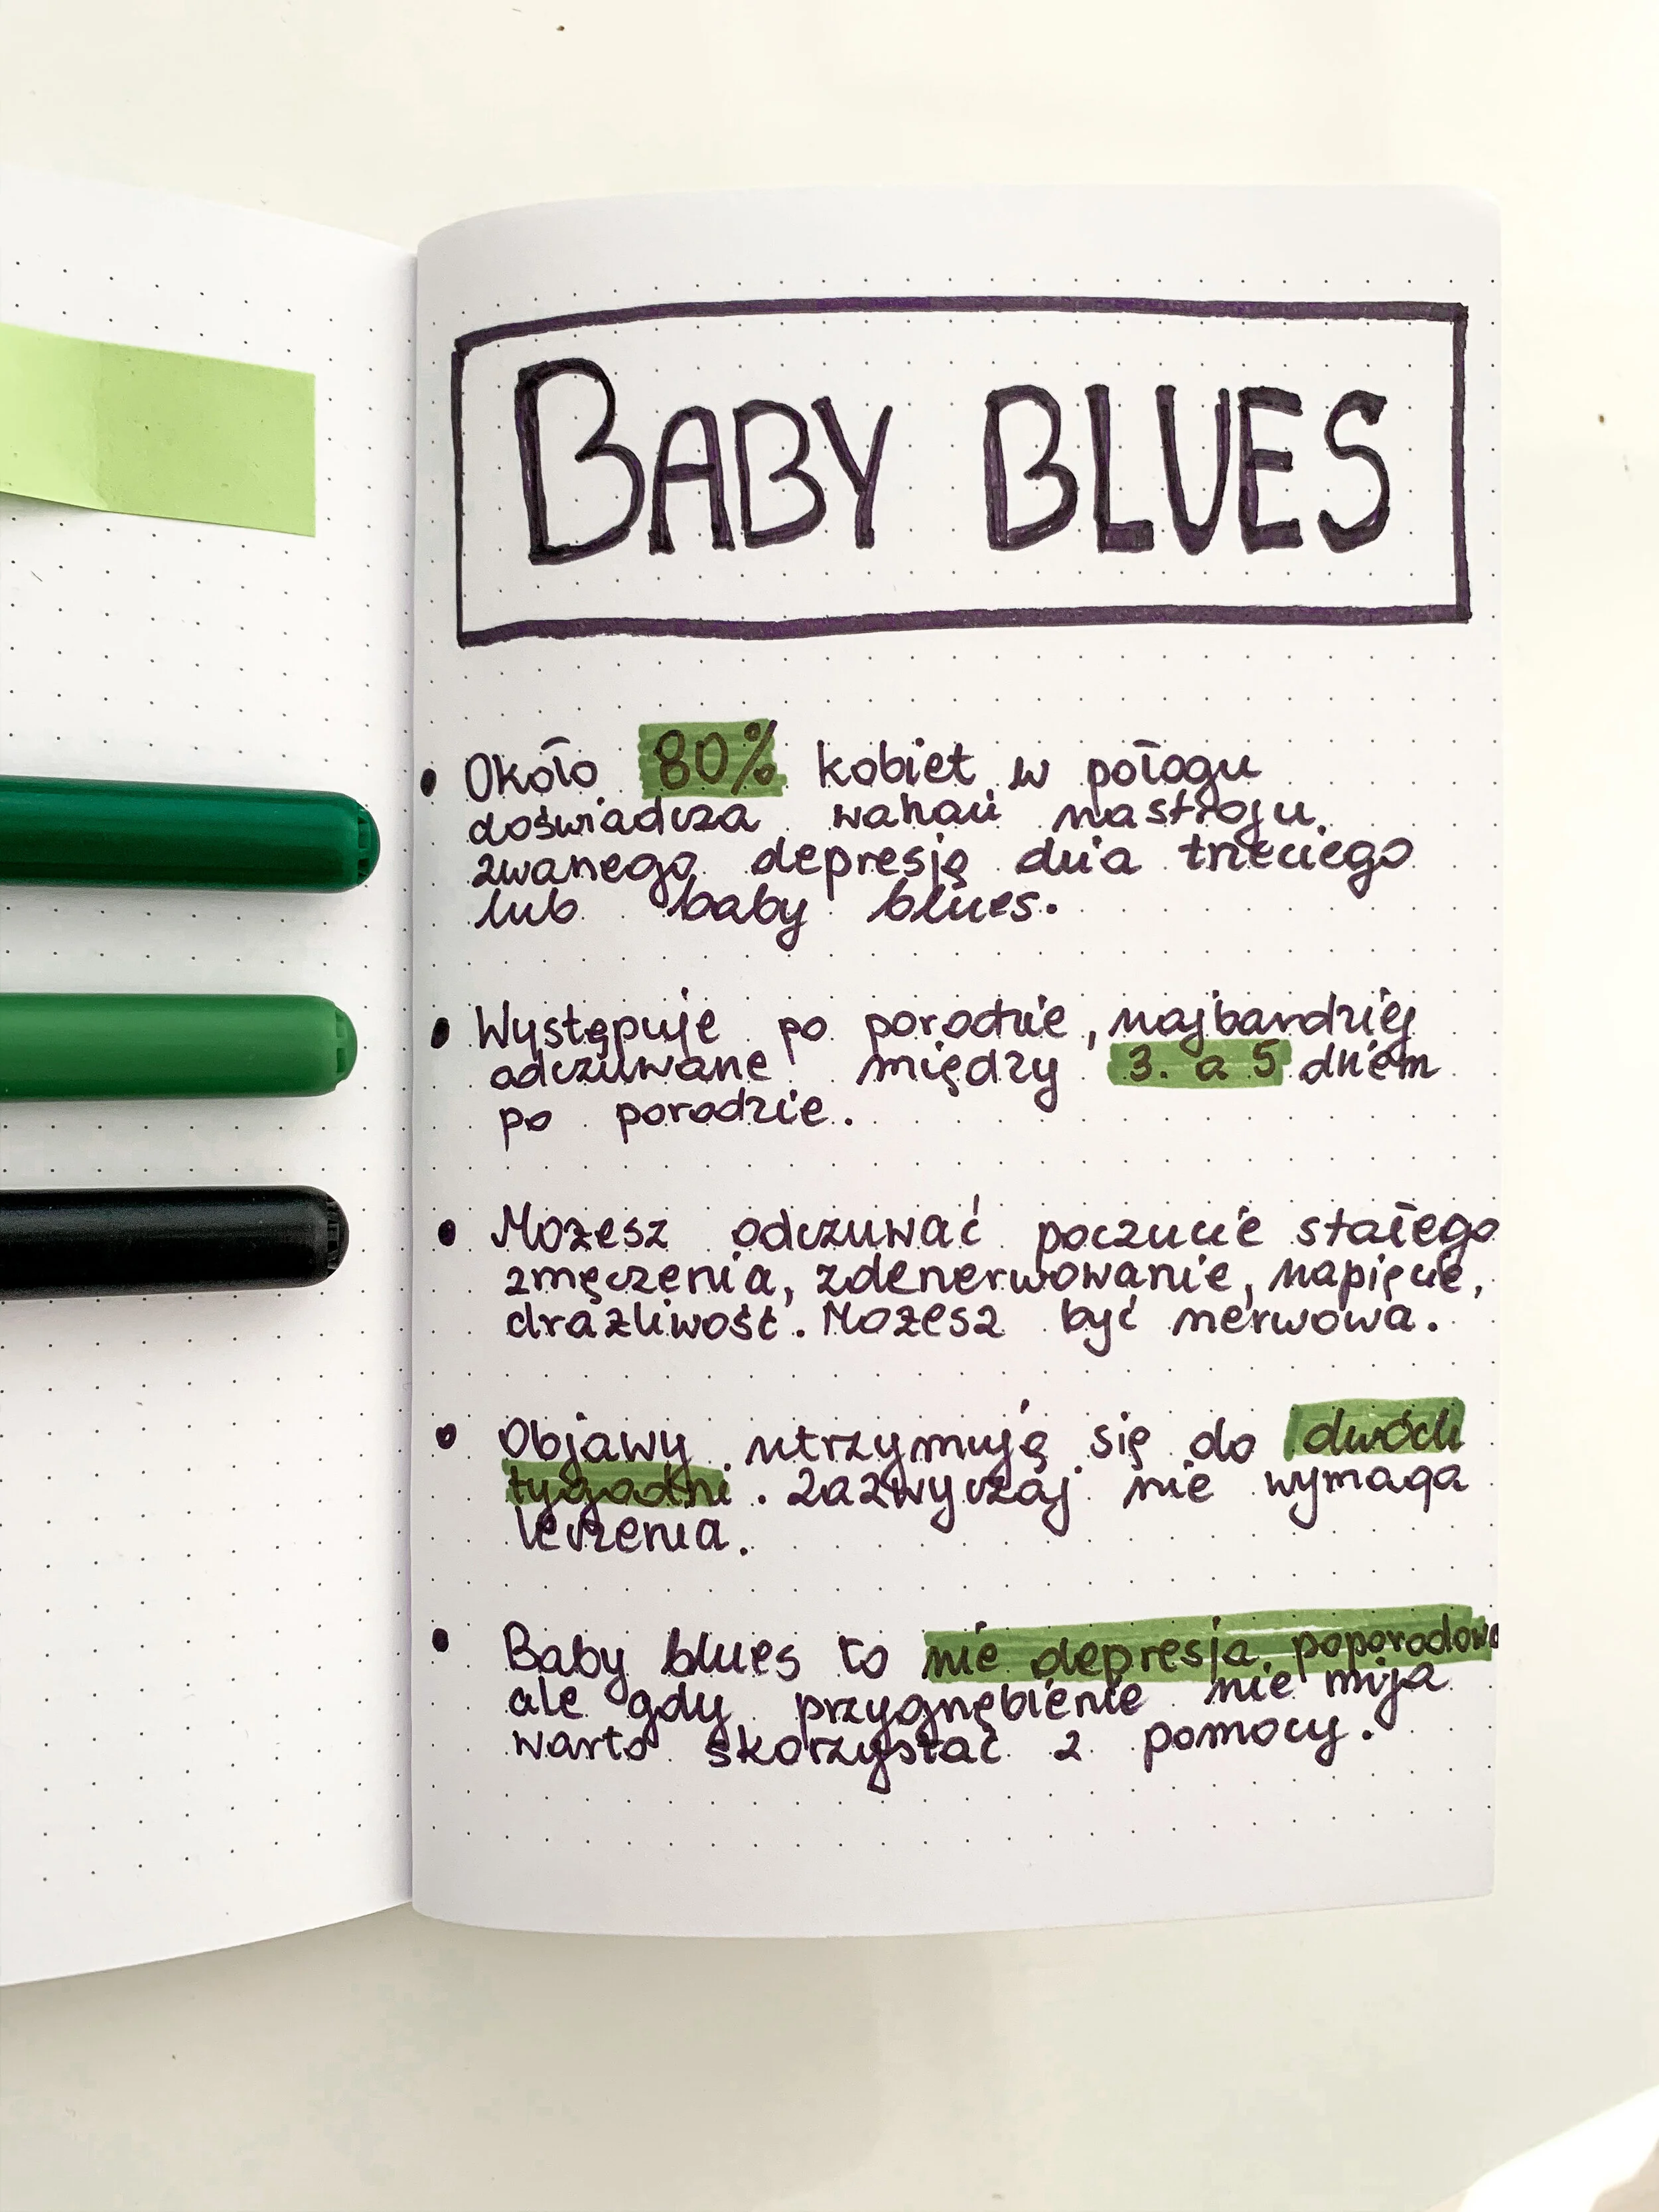 BABY BLUES
• Około 80% kobiet w połogu
doświadcza wahań nastroju
zwanego depresją dnia trzeciego
lub baby blues.
• Występuje po porodzie, najbardziej
odczuwane między 3. a 5 dniem
po porodzie.
• Możesz odczuwać poczucie stałego
zmęczenia, zdenerwowanie, napięcie,
drażliwość. Możesz być nerwowa.
• Objawy utrzymują się do dwóch
tygodni. Zazwyczaj nie wymaga
leczenia.
• Baby blues to nie depresja poporodowa
ale gdy przygnębienie nie mija
warto skorzystać z pomocy.